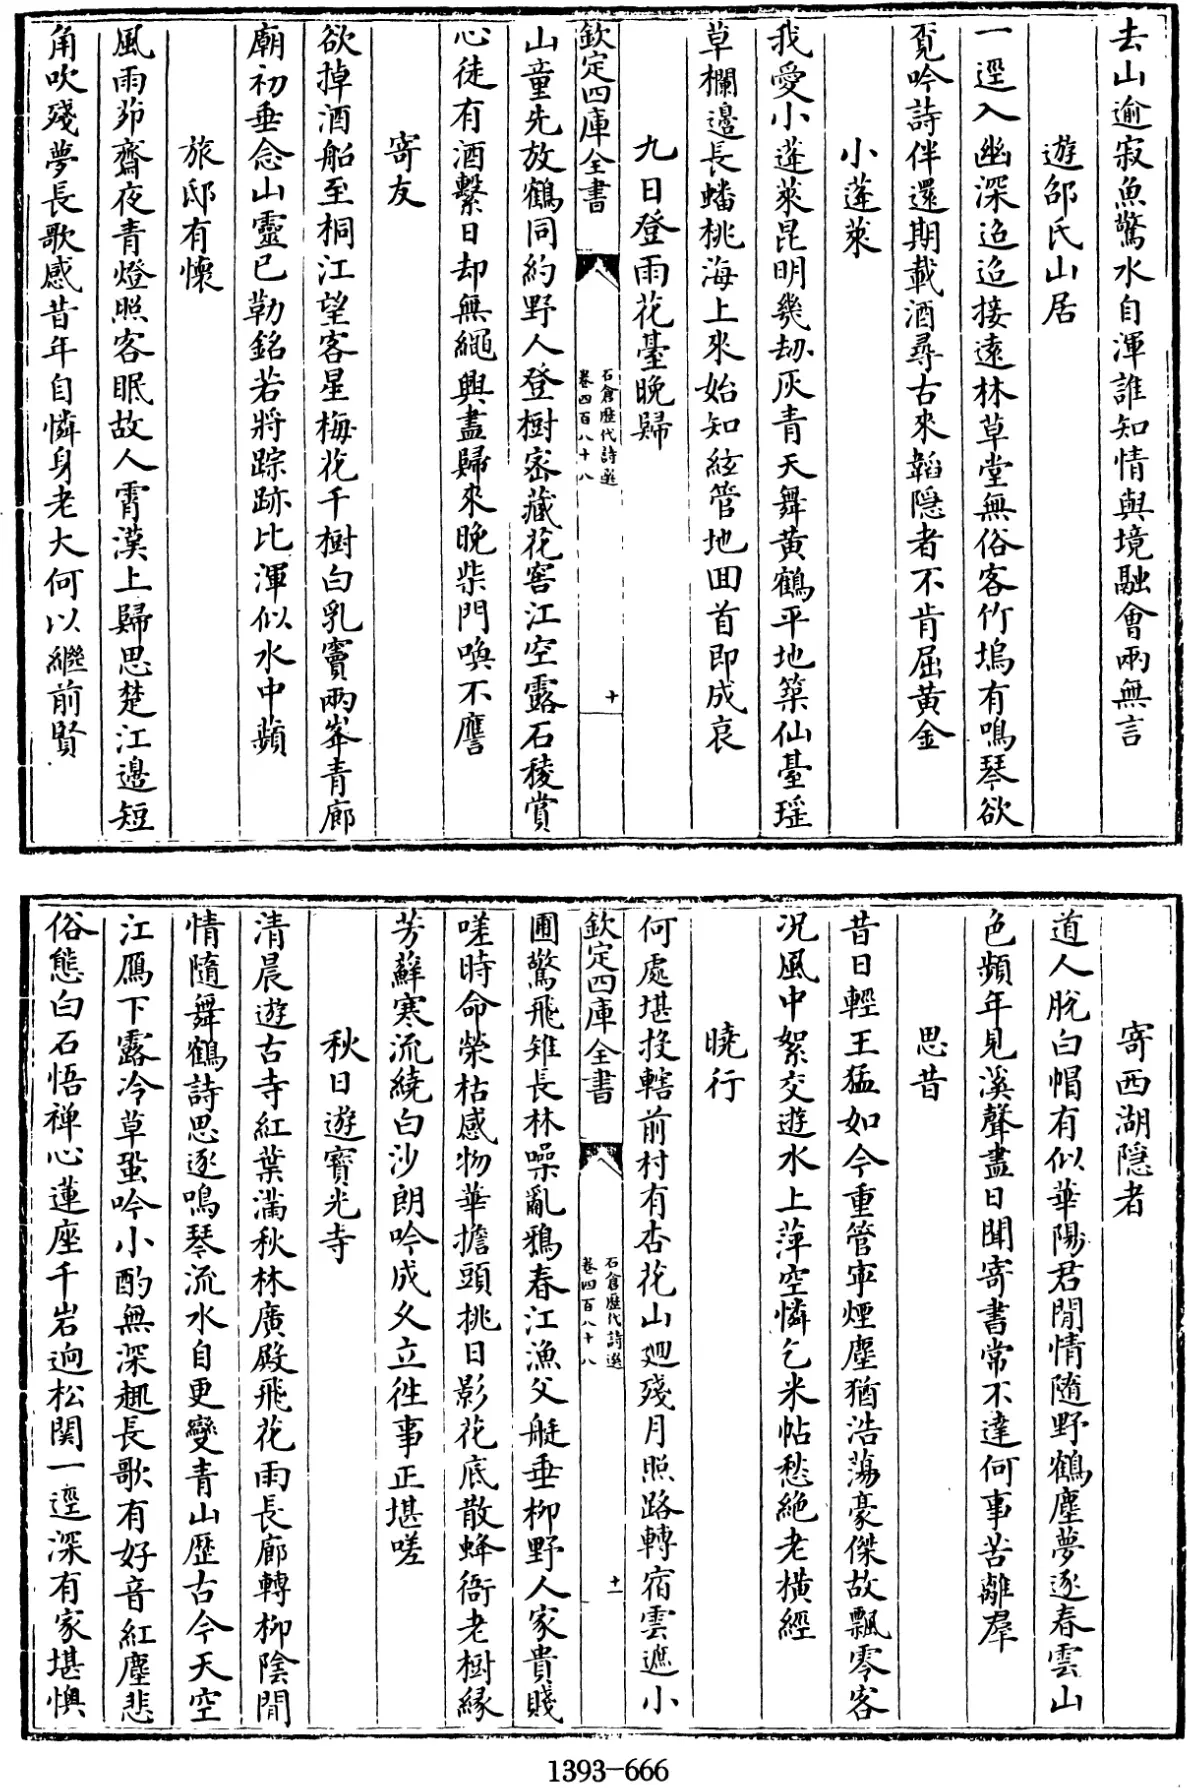 去山逾寂魚驚水自渾誰知情與境融會兩無言
遊邵氏山居
一逕入幽深迢迢接遠林草堂無俗客竹塢有鳴琴欲
覓吟詩伴還期載酒尋古來韜隠者不肯屈黄金
小蓬萊
我愛小蓬萊昆明幾劫灰青天舞黄鶴平地築仙臺瑶
草欄邉長蟠桃海上來始知絃管地回首即成哀
九日登雨花臺晩歸
欽定四庫全書
石倉歴代詩選
卷四百八十八
十
山童先放鶴同約野人登樹密藏花窖江空露石稜賞
心徒有酒繫日却無繩興盡歸來晩柴門喚不譍
寄友
欲掉酒船至桐江望客星梅花千樹白乳竇兩峯青廊
廟初垂念山靈已勒銘若將踪跡比渾似水中蘋
旅邸有懷
風雨茆齋夜青燈照客眠故人霄漢上歸思楚江邉短
角吹殘夢長歌感昔年自憐身老大何以繼前賢
寄西湖隠者
道人脱白帽有似華陽君閒情随野鶴塵夢逐春雲山
色頻年見溪聲盡日聞寄書常不達何事苦離羣
思昔
昔日輕王猛如今重管寕煙塵猶浩蕩豪傑故飄零客
况風中絮交遊水上萍空憐乞米帖愁絶老横經
曉行
何處堪投轄前村有杏花山廻殘月照路轉宿雲遮小
欽定四庫全書
石倉歴代詩選
卷四百八十八
十一
圃驚飛雉長林噪亂鴉春江漁父艇垂柳野人家貴賤
嗟時命榮枯感物華擔頭挑日影花底散蜂衙老樹縁
芳蘚寒流繞白沙朗吟成久立徃事正堪嗟
秋日遊寳光寺
清晨遊古寺紅葉滿秋林廣殿飛花雨長廊轉柳陰閒
情隨舞鶴詩思逐鳴琴流水自更變青山歴古今天空
江鴈下露冷草蛩吟小酌無深趣長歌有好音紅塵悲
俗態白石悟禅心蓮座千岩逈松関一逕深有家堪懊
1393-666